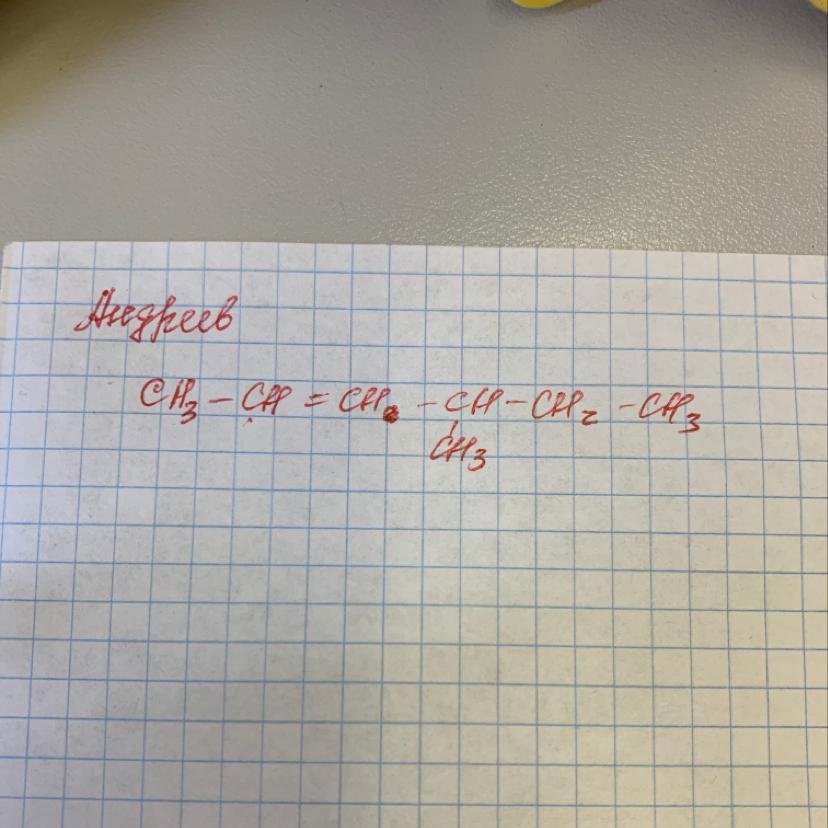 Андреев
CH₃ – CH = CH – CH – CH₂ – CH₃
CH₃